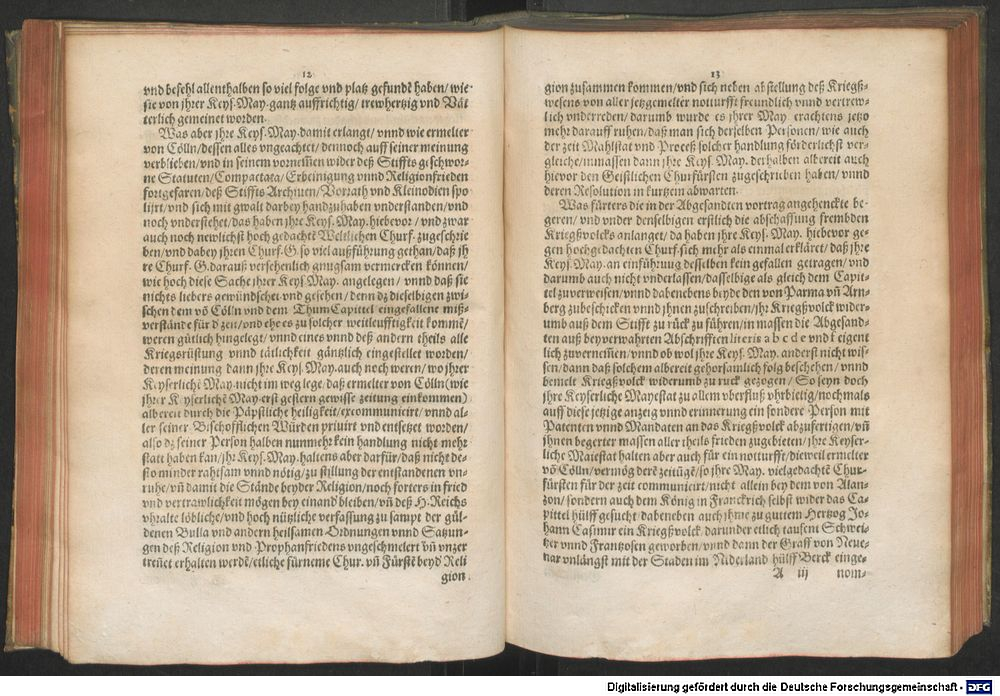 12
vnd befehl allenthalben so viel folge vnd platz gefundẽ haben/ wie
sie von jhrer Keys. May. gantz auffrichtig/ trewhertzig vnd Vät
terlich gemeinet worden.
Was aber jhre Keys. May. damit erlangt/ vnnd wie ermelter
von Cölln/ dessen alles vngeachtet/ dennoch auff seiner meinung
verblieben/ vnd in seinem vornem̃en wider deß Stiffts geschwor-
ne Statuten/ Compactata/ Erbeinigung vnnd Religionfrieden
fortgefaren/ deß Stiffts Archiuen/ Vorrath vnd Kleinodien spo
lijrt/ vnd sich mit gwalt darbey handzuhaben vnderstanden/ vnd
noch vnderstehet/ das haben jhre Keys. May. hiebevor/ vnd zwar
auch noch newlichst hoch gedachtẽ Weltlichen Churf. zugeschrie
ben/ vnd dabey jhren Churf. G. so viel außführung gethan/ daß jh
re Churf. G. darauß versehenlich gnugsam vermercken können/
wie hoch diese Sache jhrer Keys. May. angelegen/ vnnd daß sie
nichts liebers gewündschet vnd gesehen/ denn dz dieselbigen zwi-
schen dem võ Cölln vnd dem ThumCapittel eingefallene miß-
verstände für d zeit/ vnd ehe es zu solcher weitleufftigkeit kom̃ẽ/
weren gütlich hingelegt/ vnnd eines vnnd deß andern theils alle
Kriegsrüstung vnnd tätlichkeit gäntzlich eingestellet worden/
deren meinung dann jhre Keys. May. auch noch weren/ wo jhrer
Keyserlichẽ May. nicht im weg lege/ daß ermelter von Cölln (wie
jhrer Keyserlichẽ May. erst gestern gewisse zeitung einkommen)
albereit durch die Päpstliche heiligkeit/ excommunicirt/ vnnd al-
ler seiner Bischofflichen Würden priuirt vnd entsetzet worden/
also dz seiner Person halben nunmehr kein handlung nicht mehr
statt haben kan/ jhr Keys. May. haltens aber darfür/ daß nicht de-
sto minder rahtsam vnnd nötig/ zu stillung der entstandenen vn-
ruhe/ vñ damit die Stände beyder Religion/ noch forters in fried
vnd vertrawlichkeit mögen bey einand bleiben/ vñ deß H. Reichs
vhralte löbliche/ vnd hoch nützliche verfassung zu sampt der gül-
denen Bulla vnd andern heilsamen Ordnungen vnnd Satzun-
gen deß Religion vnd Prophanfriedens vngeschmelert vñ vnzer
treñet erhalten werdẽ/ etliche fürneme Chur. vñ Fürstẽ beyd Reli
gion
13
gion zusammen kommen/ vnd sich neben abstellung deß Kriegß-
wesens von aller jetzgemelter notturfft freundlich vnnd vertrew-
lich vndtreden/ darumb wurde es jhrer May. erachtens jetzo
mehr darauff ruhen/ daß man sich derselben Personen/ wie auch
der zeit Mahlstat vnd Proceß solcher handlung förderlichst ver-
gleiche/ inmassen dann jhre Keys. May. derhalben albereit auch
hievor den Geistlichen Churfürsten zugeschrieben haben/ vnnd
deren Resolution in kurtzem abwarten.
Was fürters die in der Abgesandten vortrag angehenckte be-
geren/ vnd vnder denselbigen erstlich die abschaffung frembden
Kriegßvolcks anlanget/ da haben jhre Keys. May. hiebevor ge-
gen hochgedachten Churf. sich mehr als einmal erkläret/ daß jhre
Keys. May. an einführung desselben kein gefallen getragen/ vnd
darumb auch nicht vnderlassen/ dasselbige als gleich dem Capit-
tel zuverweisen/ vnnd dabenebens beyde den von Parma vñ Arn-
berg zubeschicken vnnd jhnen zuschreiben/ jhr Kriegßvolck wider-
umb auß dem Stifft zu rück zu führen/ in massen die Abgesand-
ten auß beyverwahrten Abschrifften literis a b c d e vnd f eigent
lich zuvernem̃en/ vnnd ob wol jhre Keys. May. anderst nicht wis-
sen/ dann daß solchem albereit gehorsamlich folg beschehen/ vnnd
bemelt Kriegßvolck widerumb zu ruck gezogen/ So seyn doch
jhre Keyserliche Mayestat zu allem vberfluß vhrbietig/ nochmals
auff diese jetzige anzeig vnnd erinnerung ein sondere Person mit
Patenten vnnd Mandaten an das Kriegßvolck abzufertigen/ vñ
jhnen begerter massen aller theils frieden zugebieten/ jhre Keyser-
liche Maiestat halten aber auch für ein notturfft/ dieweil ermelter
võ Cölln/ vermög derẽ zeitũgẽ/ so jhre May. vielgedachtẽ Chur-
fürsten für der zeit communicirt/ nicht allein bey dem von Alan-
zon/ sondern auch dem König in Franckrich selbst wider das Ca-
pittel hülff gesucht/ dabeneben auch jhme zu guttem Hertzog Jo-
hann Casimir ein Kriegßvolck darunder etlich tausent Schwei-
tzer vnnd Frantzosen geworben/ vnnd dann der Graff von Neue-
nar vnlängst mit der Staden im Niderland hülff Berck einge-
A iij nom-
Digitalisierung gefördert durch die Deutsche Forschungsgemeinschaft - DFG